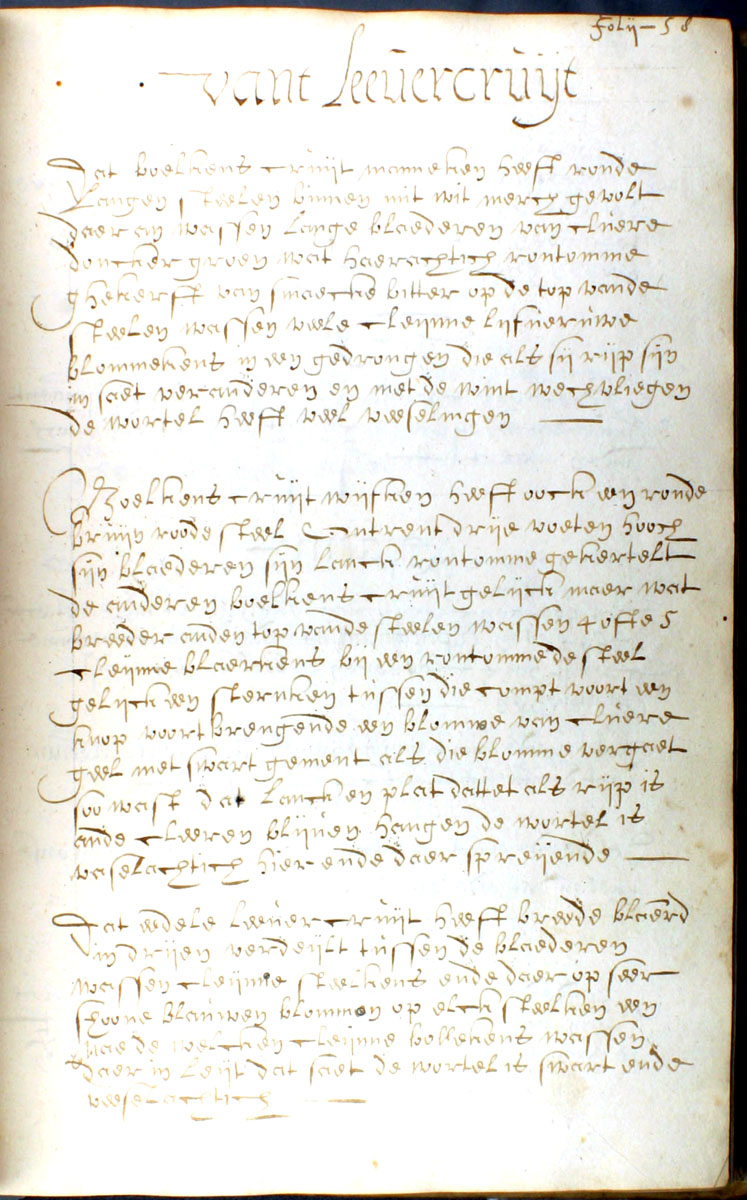 Folij - 58
vant Leeuercruijt
Dat boelkens cruijt manneken heeft ronde
Langen steelen binnen mit wit merch gevolt
daer an wassen lange blaederen van cluere
doncker groen wat haerachtich rontomme
ghekerft van smaecke bitter op de top vande
steelen wassen veele cleijnne lijfueruwe
blommekens in een gedrongen die als sij rijp sijn
in saet veranderen en met de wint wechvliegen
de wortel heeft veel veeselingen
Boelkens cruijt wijfken heeft oock een ronde
bruijn roode steel Omtrent drije voeten hooch
sijn blaederen sijn lanck rontomme gekertelt
de anderen boelkens cruijt gelijck maer wat
breeder anden top vande steelen wassen 4 ofte 5
cleijnne blaerkens bij een rontomme de steel
gelijck een sternken tussen die compt voort een
knop voort brengende een blomme van cluere
geel met swart gement als die blomme vergaet
soo wast dat lanck en plat dattet als rijp is
ande cleeren blijuen hangen de wortel is
vaselachtich hier ende daer spreijende
Dat edele leeuercruijt heeft breede blaerd
in drijen verdeijlt tussen de blaederen
wassen cleijnne steelkens ende daer op seer
schoone blauwen blommen op elck steelken een
nae de welcken cleijnne bollekens wassen
daer in leijt dat saet de wortel is swart ende
veeselachtich